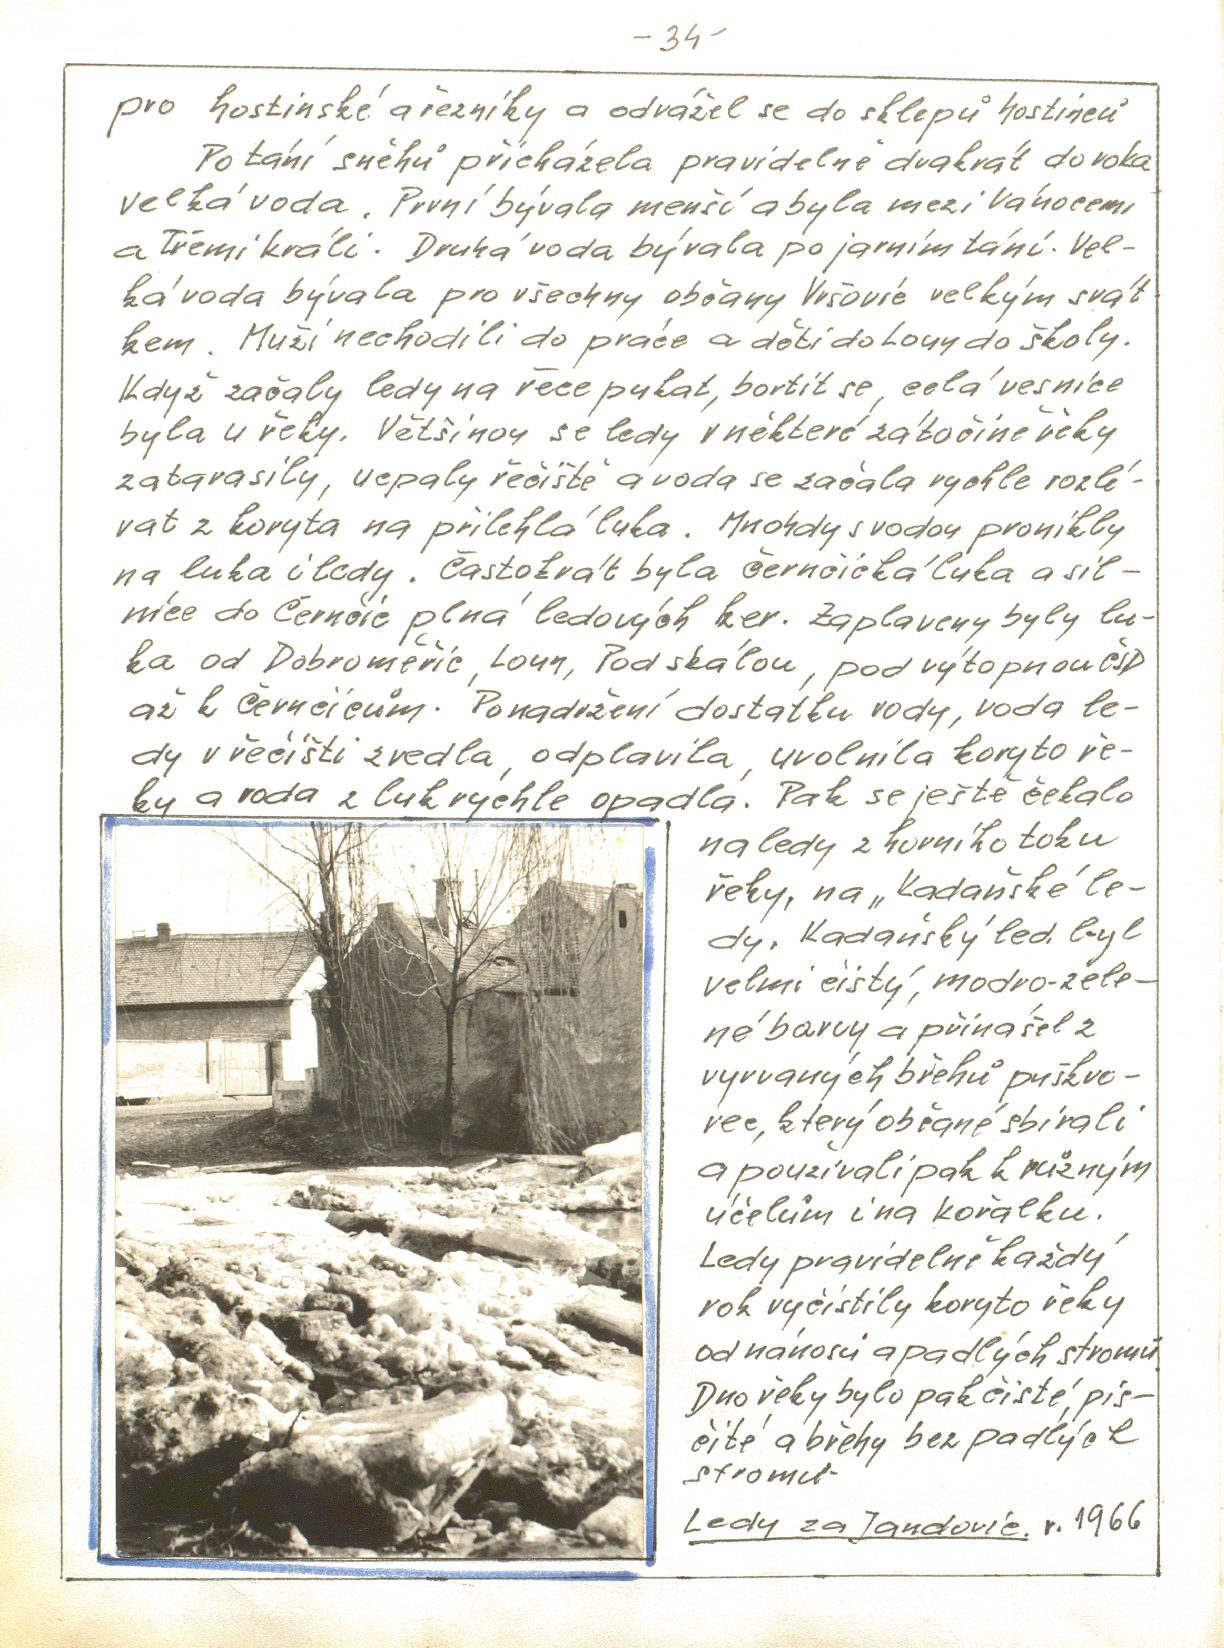 - 34 -
pro hostinské a řezníky a odvážel se do sklepů hostinců
Po tání sněhů přicházela pravidelně dvakrát do roka
velká voda. První bývala menší a byla mezi Vánocemi
a Třemi králi. Druhá voda bývala po jarním tání. Vel-
ká voda bývala pro všechny občany Vršovic velkým svát
kem. Muži nechodili do práce a děti do Loun do školy.
Když začaly ledy na řece pukat, bortit se, celá vesnice
byla u řeky. Většinou se ledy v některé zátočině řeky
zatarasily, ucpaly řečiště a voda se začala rychle rozlé-
vat z koryta na přilehlá luka. Mnohdy s vodou pronikly
na luka i ledy. Častokrát byla černčická luka a sil-
nice do Černčic plná ledových ker. Zaplaveny byly lu-
ka od Dobroměřic, Loun, Pod skálou, pod výtopnou ČSD
až k Černčicům. Po nadržení dostatku vody, voda le-
dy v řečišti zvedla, odplavila, uvolnila koryto ře-
ky a voda z luk rychle opadla. Pak se ještě čekalo
na ledy z horního toku
řeky, na „Kadaňské le-
dy. Kadaňský led byl
velmi čistý, modro-zele-
né barvy a přinášel z
vyrvaných břehů puškvo-
rec, který občané sbírali
a používali pak k různým
účelům i na kořalku.
Ledy pravidelně každý
rok vyčistily koryto řeky
od nánosů a padlých stromů
Dno řeky bylo pak čisté, pís-
čité a břehy bez padlých
stromů.
Ledy za Jandovic. r. 1966